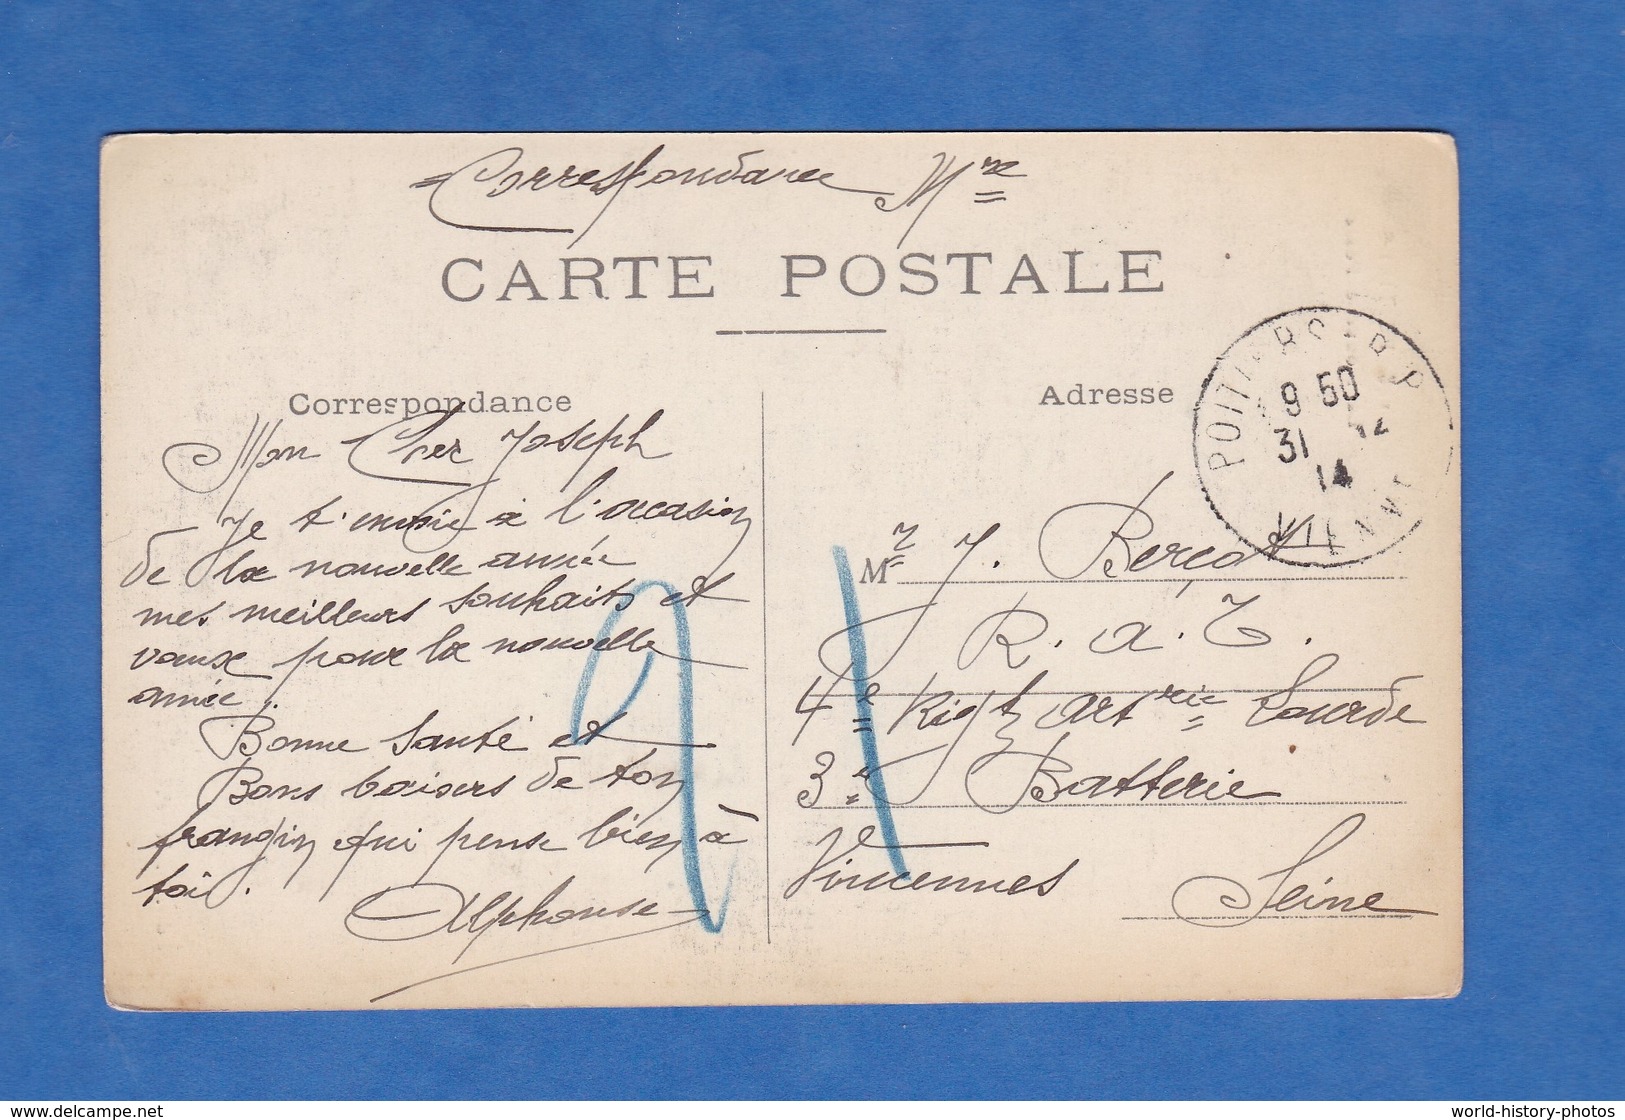 Correspondance Mre
CARTE POSTALE
Correspondance
Mon Cher Joseph
Je t'envoie à l'occasion
de la nouvelle année
mes meilleurs souhaits et
vœux pour la nouvelle
année.
Bonne Santé et
Bons baisers de ton
frangin qui pense bien à
toi.
Alphonse
Adresse
POITIERS R.P.
9 50
31 12
14
VIENNE
Mr J. Berçot
R. a. T.
4e Rigt Artrie Lourde
3e Batterie
Vincennes
Seine
www.delcampe.net
world-history-photos